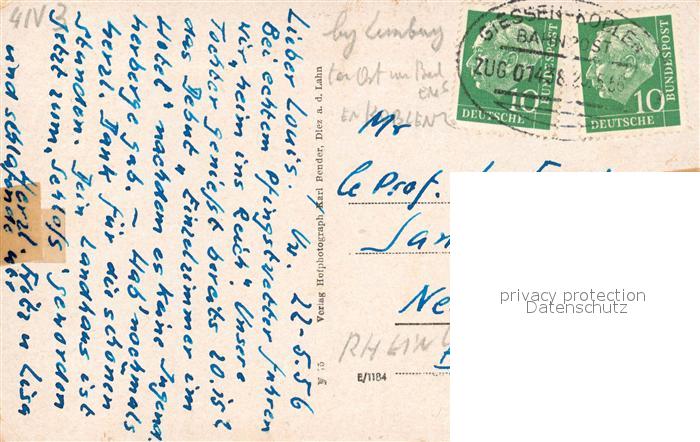 41V3
Lieber Louis. Dr. 22.5.56
Bei echtem Pfingstwetter fuhren
wir „heim ins Reich". Unsere
Tochter genießt bereits 20.15h
das Debut „Einzelzimmer im
Hotel" nachdem es keine Jugend-
herberge gab. – Hab' nochmals
herzl. Dank für die schönen
Stunden. Dein Landhaus ist
jetzt zum „Schloß" geworden
Herzl. Fritz u Lisa
und schlafende
Verlag Hofphotograph Karl Bender, Diez a. d. Lahn
by Limburg
Ort Bad
EMS
EN KOBLENZ
GIESSEN-KOBLEN
BAHNPOST
ZUG 01458
10
DEUTSCHE
BUNDESPOST
10
DEUTSCHE
BUNDESPOST
Mr
le Prof.
San
Ne
RHEIN
E/1184
privacy protection
Datenschutz